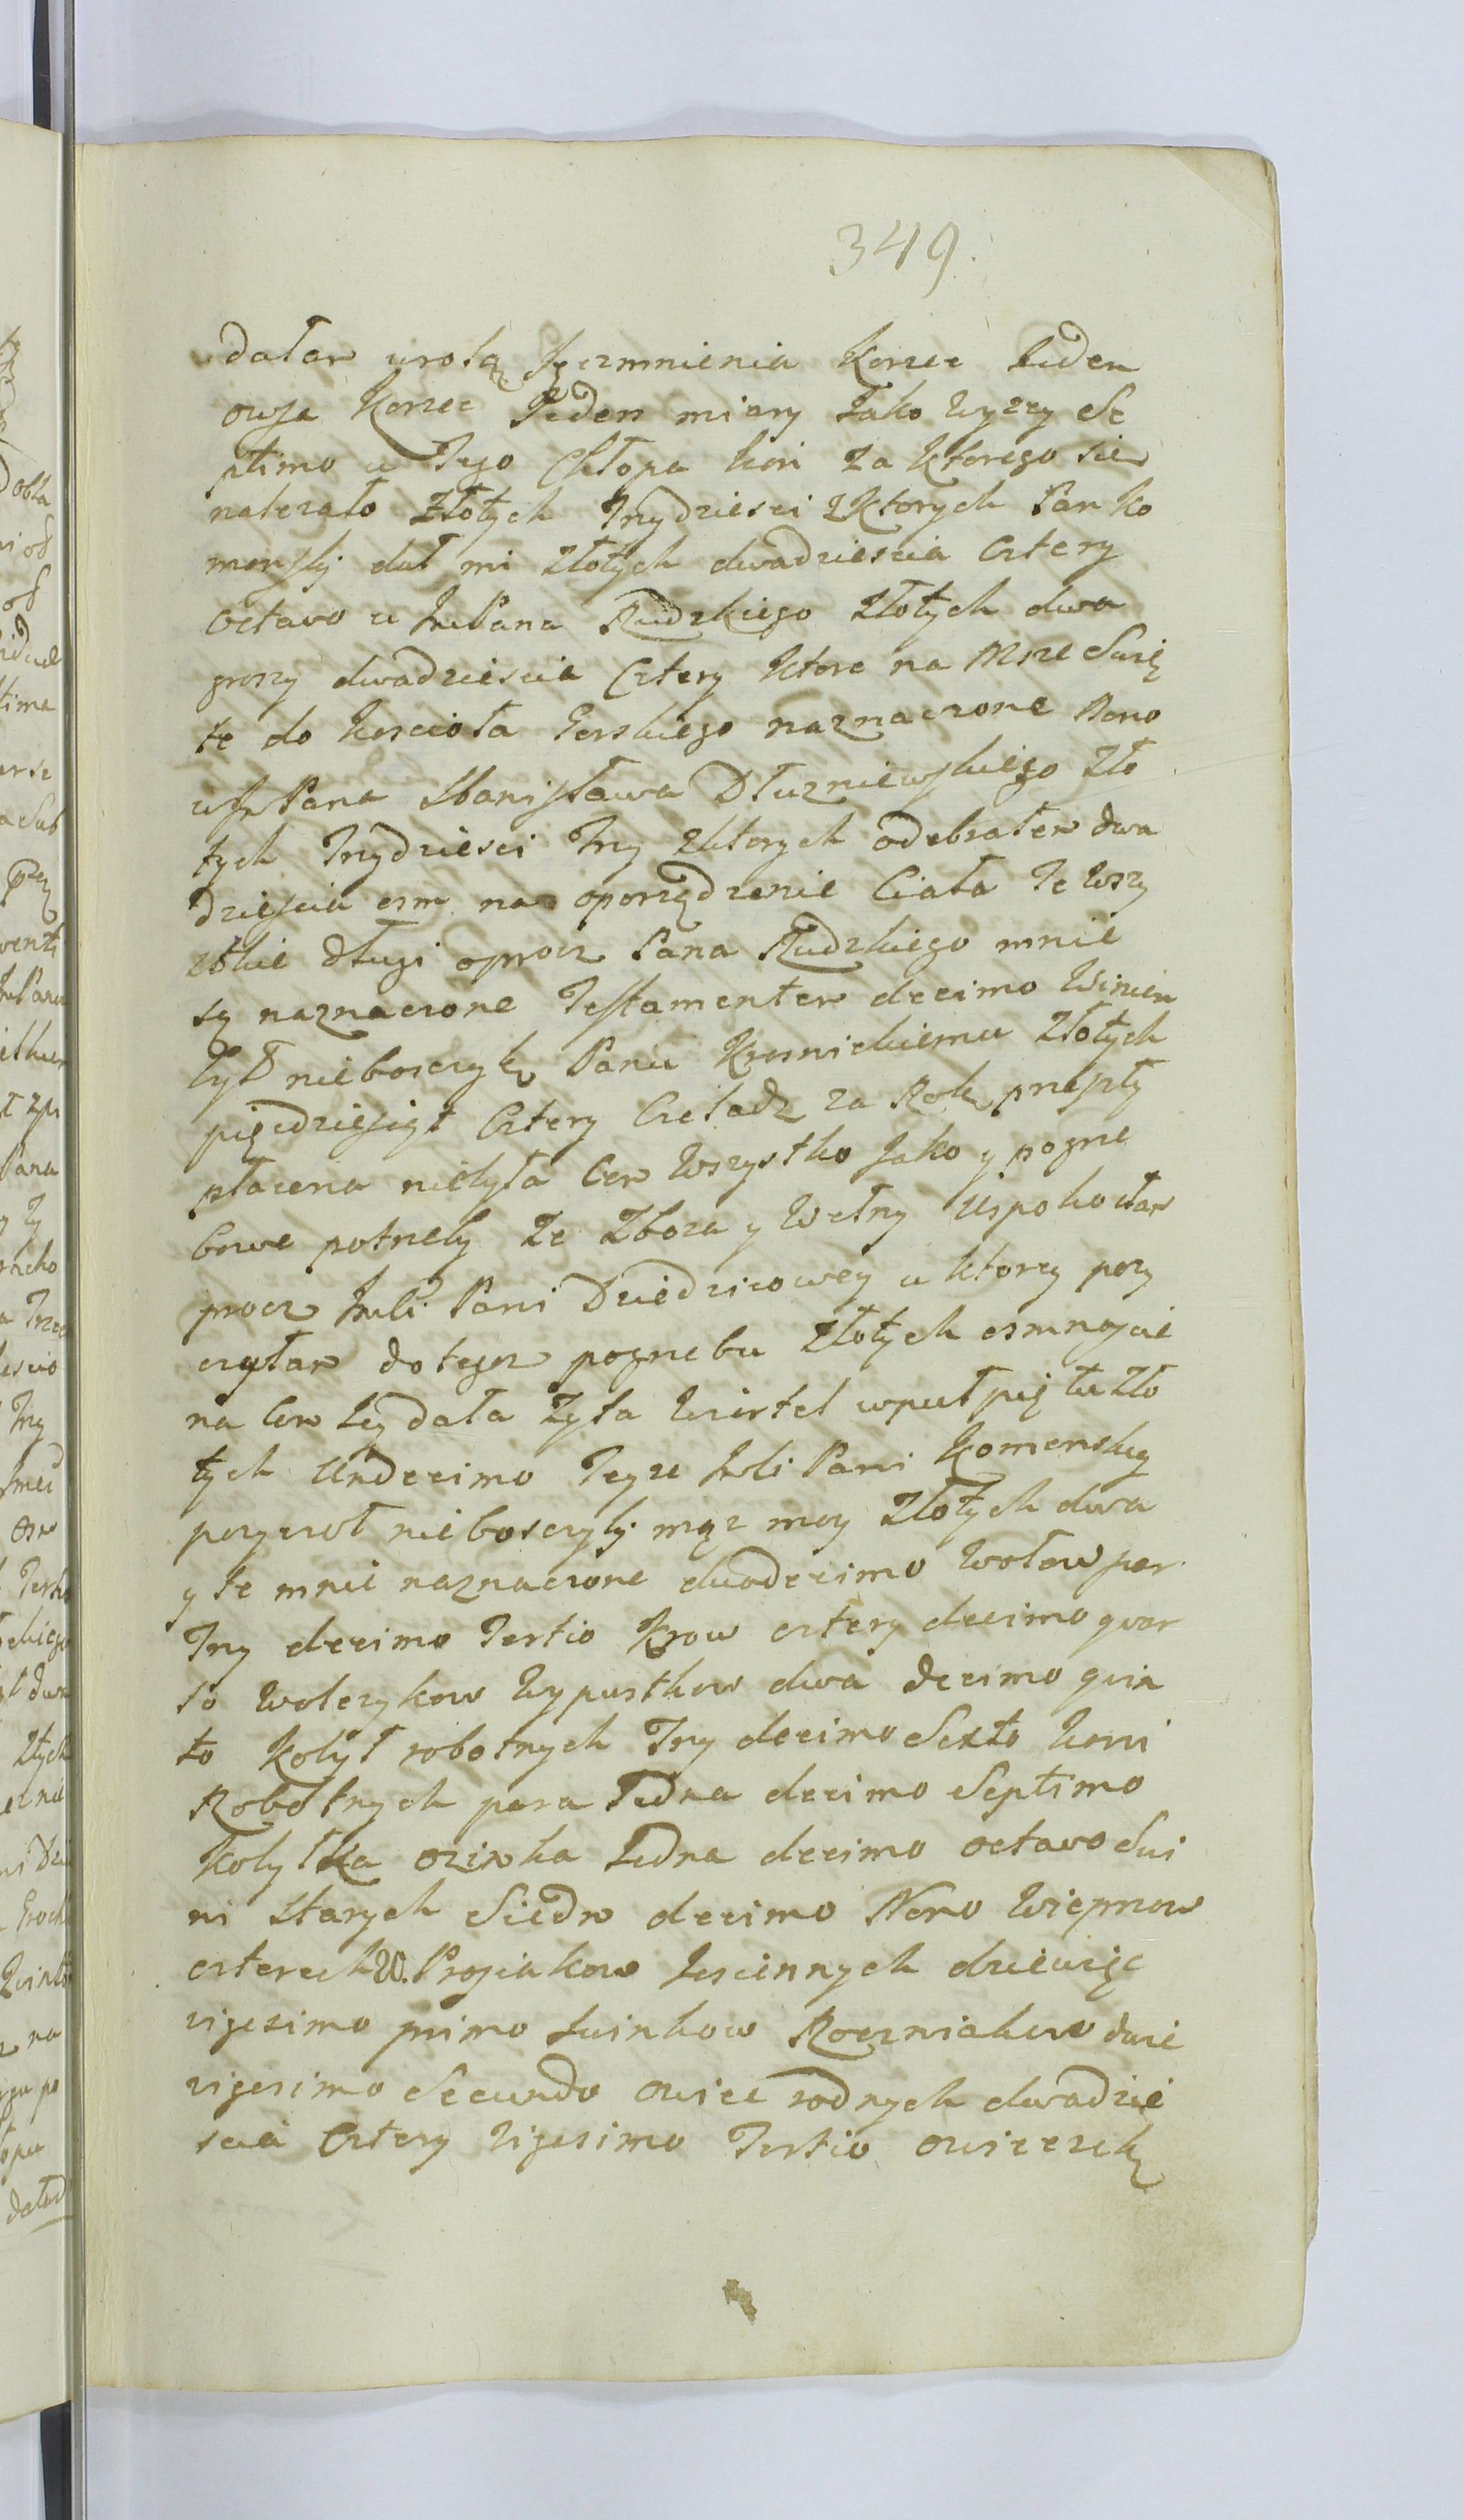 349.
dałam wrolą Jęczmnienia Korzec Jeden
owsa Korzec Jeden miary Jako wyzey Se
ptimo u Tego Chłopa koń za ktorego sie
nalezało Złotych Trzydziesci zktorych Pan Ko
menski dał mi Złotych dwadziescia Cztery
Octavo u JmPana Rudzkiego Złotych dwa
groszy dwadziescia Cztery ktore na Msze Swię
te do koscioła Gorskiego naznaczone Nono
u JmPana Stanisława Dłuzniewskiego Zło
tych Trzydziesci Trzy zktorych odebrałem dwa
dziescia osm na oporządzenie Ciała Te wszy
stkie długi oprocz Pana Rudzkiego mnie
są naznaczone Testamentem decimo Winien
był nieboszczyk Panu Krasnickiemu Złotych
pięcdziesiąt Cztery Czeladz za Rok przeszły
płacona niebyła Com wszystko Jako y pogrze
bowe potrzeby Ze Zboza y Wełny Uspokoiłam
procz Jmci Pani Dziedzicowey u ktorey pozy
czyłam do tegoz pogrzebu Złotych osmnascie
na Com Jey dała Zyta Cwiertel wpuł pięta Zło
tych Undecimo Teyze Jmci Pani Komenskiey
pozyczoł nieboszczyk mąz moy Złotych dwa
y te mnie naznaczone duodecimo Wołow par
Trzy decimo Tertio Krow cztery decimo quar
to Wolczykow Wypustkow dwa decimo quin
to Kobył robotnych Trzy decimo Sexto koni
Robotnych para Jedna decimo Septimo
Kobyłka ozimka Jedna decimo octavo Swi
ni starych Siedm decimo Nono Wieprzow
czterech 20. Prosiakow Jesiennych dziewięc
vigesimo primo Swinkow Roczniakow dwie
vigesimo Secundo owiec rodnych dwadzie
scia Cztery vigesimo Tertio owieczek